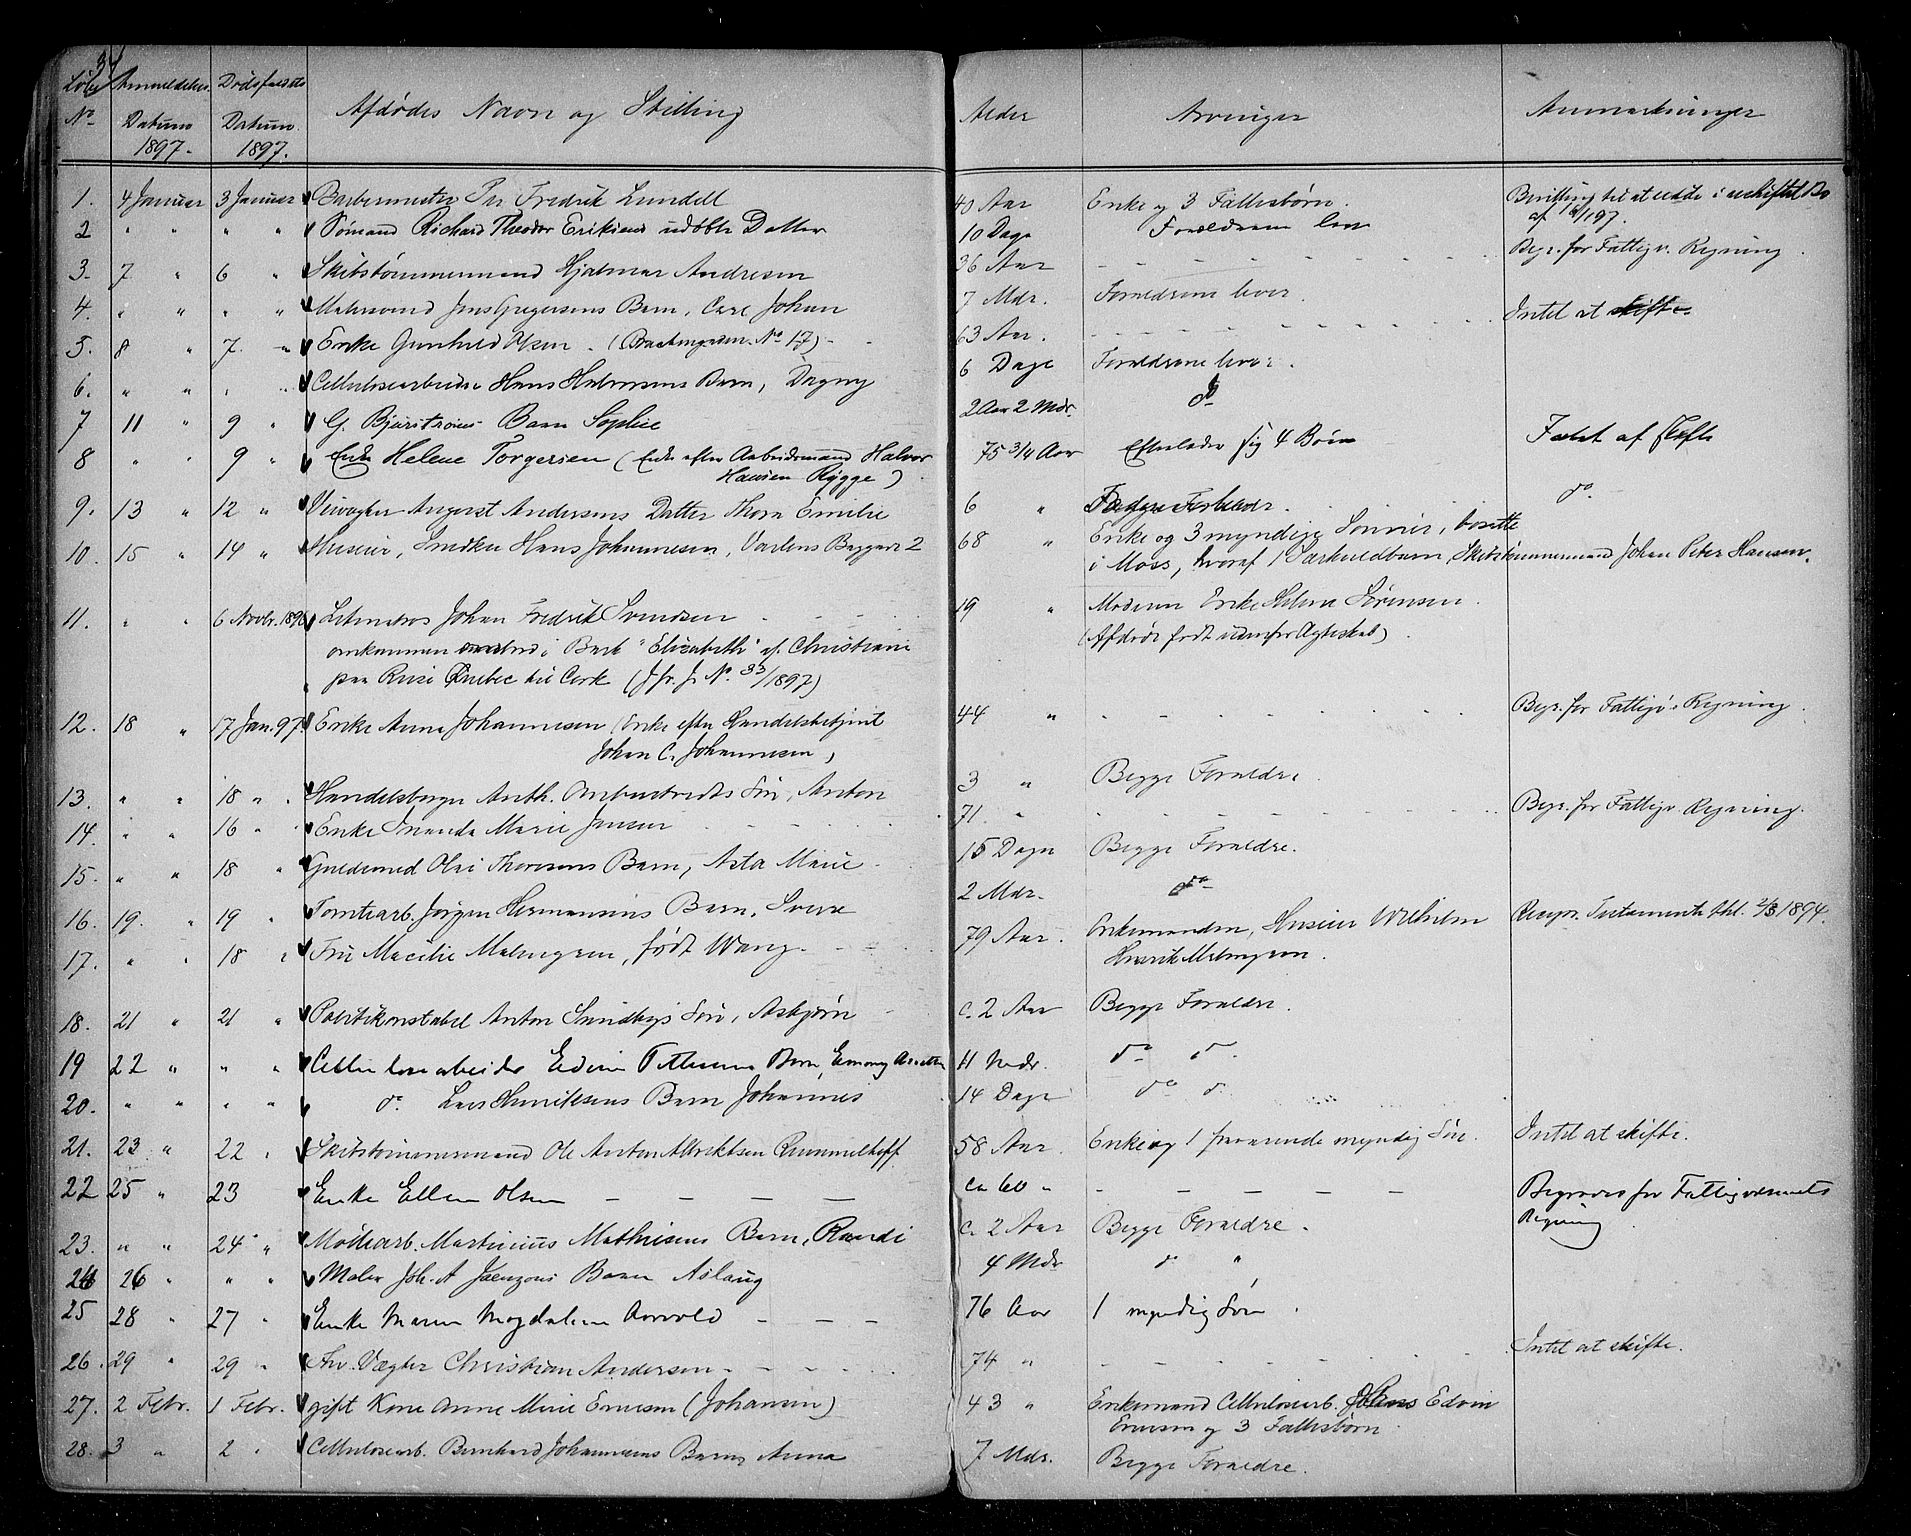 34
Løbe No Anmeldelses Datum 1897. Dødsfaldets Datum 1897. Afdødes Navn og Stilling Alder Arvinger Anmærkninger
1. 4 Januar 3 Januar Barbermester Per Fredrik Lundell 40 Aar Enke og 3 Fællesbørn. Bevilling til at sidde i uskiftet Bo
af 197.
2 " " " " Sømand Richard Theodor Eriksens udøbte Datter 10 Dage Forældrene lever
3. 7 " 6 " Skibstømmermand Hjalmar Andresen 36 Aar - - - Begr. for Fattigv. Regning
4. " " " " Jens Gregersens Barn, Carl Johan 7 Mdr. Forældrene lever.
5. 8 " 7. " Enke Gunhild Olsen. (No 17) - 63 Aar. - - - Intet at skifte
6. " " " " Cellulosearbeider Hans Halvorsens Barn, Dagny 6 Dage Forældrene lever.
7 11 " 9 " G. Bjurstrøms Barn Sophie 2 Aar 2 Mdr. do
8 " " 9 " Enke Helene Torgersen (Enke efter Arbeidsmand Halvor
Hansen Rygge) 75 3/4 Aar Efterlader sig 4 Børn Faldt af Skifte
9. 13 " 12 " August Andersens Datter Thora Emilie 6 " Begge Forældre. do
10. 15 " 14 " Huseier, Snedker Hans Johannesen, Varlens Baggade 2 68 " Enke og 3 myndige Sønner, bosatte
i Moss, hvoraf 1 Særkuldbarn, Skibstømmermand Johan Peter Hansen.
11. " " 6 Novbr. 1896 Letmatros Johan Fredrik Svendsen 19 " Moderen Enke Sørensen.
omkommen ombord i Bark "Elizabeth" af Christiania (Afdøde født udenfor Ægteskab).
paa Reise Quebec til Cork (Jfr. J. No. 33/1897)
12. 18 " 17 Jan. 97. Enke Anna Johannesen (Enke efter Handelsbetjent
Johan C. Johannesen) 44 " - - - Begr. for Fattigv. Regning.
13. " " 18 " Handelsborger Anth. Søn, Anton 3 " Begge Forældre.
14. " " 16 " Enke Marie Jensen 71. " - - - Begr. for Fattigv. Regning.
15. " " 18 " Guldsmed Olai Thoresens Barn, Asta Marie 15 Dage Begge Forældre.
16. 19. " 19 " Tomtearb. Jørgen Hermansens Barn, Sverre 2 Mdr. do
17. " " 18 " Fru Malmgren, født Wang. 79 Aar. Enkemanden, Huseier Wilhelm
Henrik Malmgren. Recipr. Testamente thl. 2/3 1894.
18. 21 " 21 " Politikonstabel Anton Sundbys Søn, Asbjørn c. 2 Aar Begge Forældre.
19 22 " " " Cellulosearbeider Edvin Pettersens Barn, 11 Mdr. do do
20. " " " " do. Lars Henriksens Barn Johannes 14 Dage do do
21. 23 " 22 " Skibstømmermand Ole Anton Albriktsen Rummelhoff 58 Aar. Enke og 1 fraværende myndig Søn. Intet at skifte.
22 25 " 23 Enke Ellen Olsen - - - ca 60 " - - - Begraves for Fattigvæsenets
Regning
23. " " 24 " Møllearb. Martinius Mathisens Barn, Randi c. 2 Aar Begge Forældre.
24 26 " " " Maler Joh. A. Jaenzons Barn Aslaug 4 Mdr do "
25 28 " 27 " Enke Maren Magdalena Aarvold - - - 76 Aar 1 myndig Søn.
26. 29 " 29 " Fhv. Vægter Christian Andersen - - - 74 " - - - Intet at skifte.
27. 2 Febr. 1 Febr. gift Kone Anne Marie Ernesen (Johansen) 43 " Enkemand Cellulosearb. Edvin
Ernesen og 3 Fællesbørn.
28. 3 " 2 " Cellulosearb. Bernhard Johannesens Barn, Anna 7 Mdr. Begge Forældre.